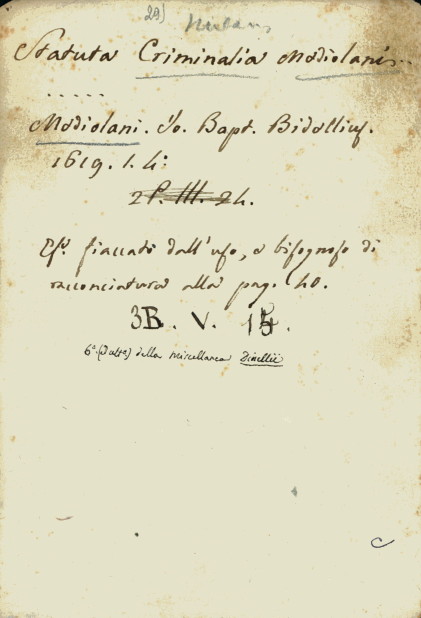 29)
Milano
Statuta Criminalia Mediolani..
.....
Mediolani. Io. Bapt. Bidelliuſ.
1619. 1. 4:
2P. III. 24.
Eſ. fiaccato dall'uſo, e biſognoſo di
racconciatura alla pag. 40.
3B. V. 15.
6a. (d'altra) della miscellanea